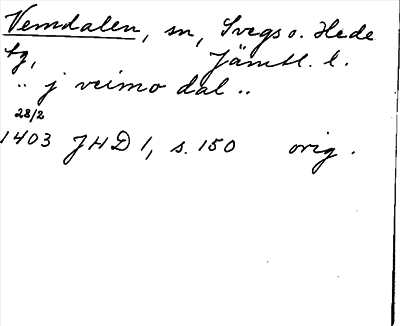 Vemdalen, sn, Svegs o. Hede
tg, Jämtl. l.
.. j veimo dal ..
28/2
1403 JHD 1, s. 150 orig.